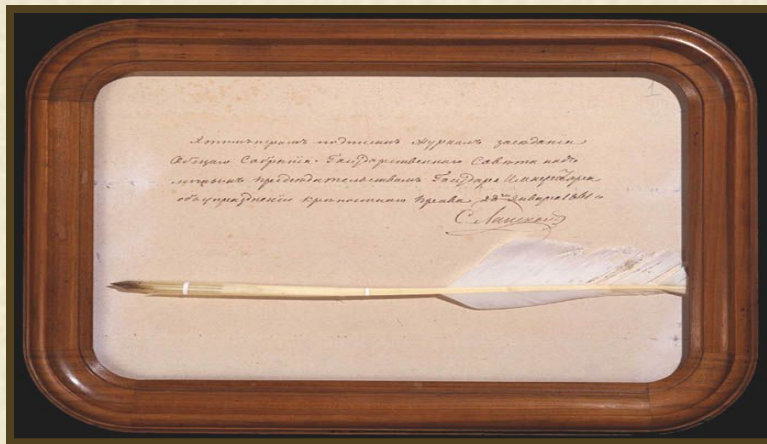 1
Этимъ перомъ подписанъ Журналъ заседанія
Общаго Собранія Государственнаго Совѣта подъ
личнымъ предсѣдательствомъ Государя Императора
объ упраздненіи крѣпостнаго права, 28го Января 1861 г.
С. Ланской